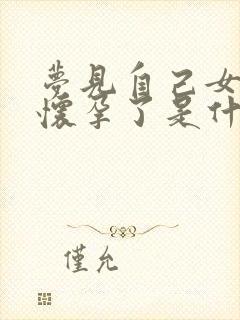 夢見自己女
懷孕了是什
僅允